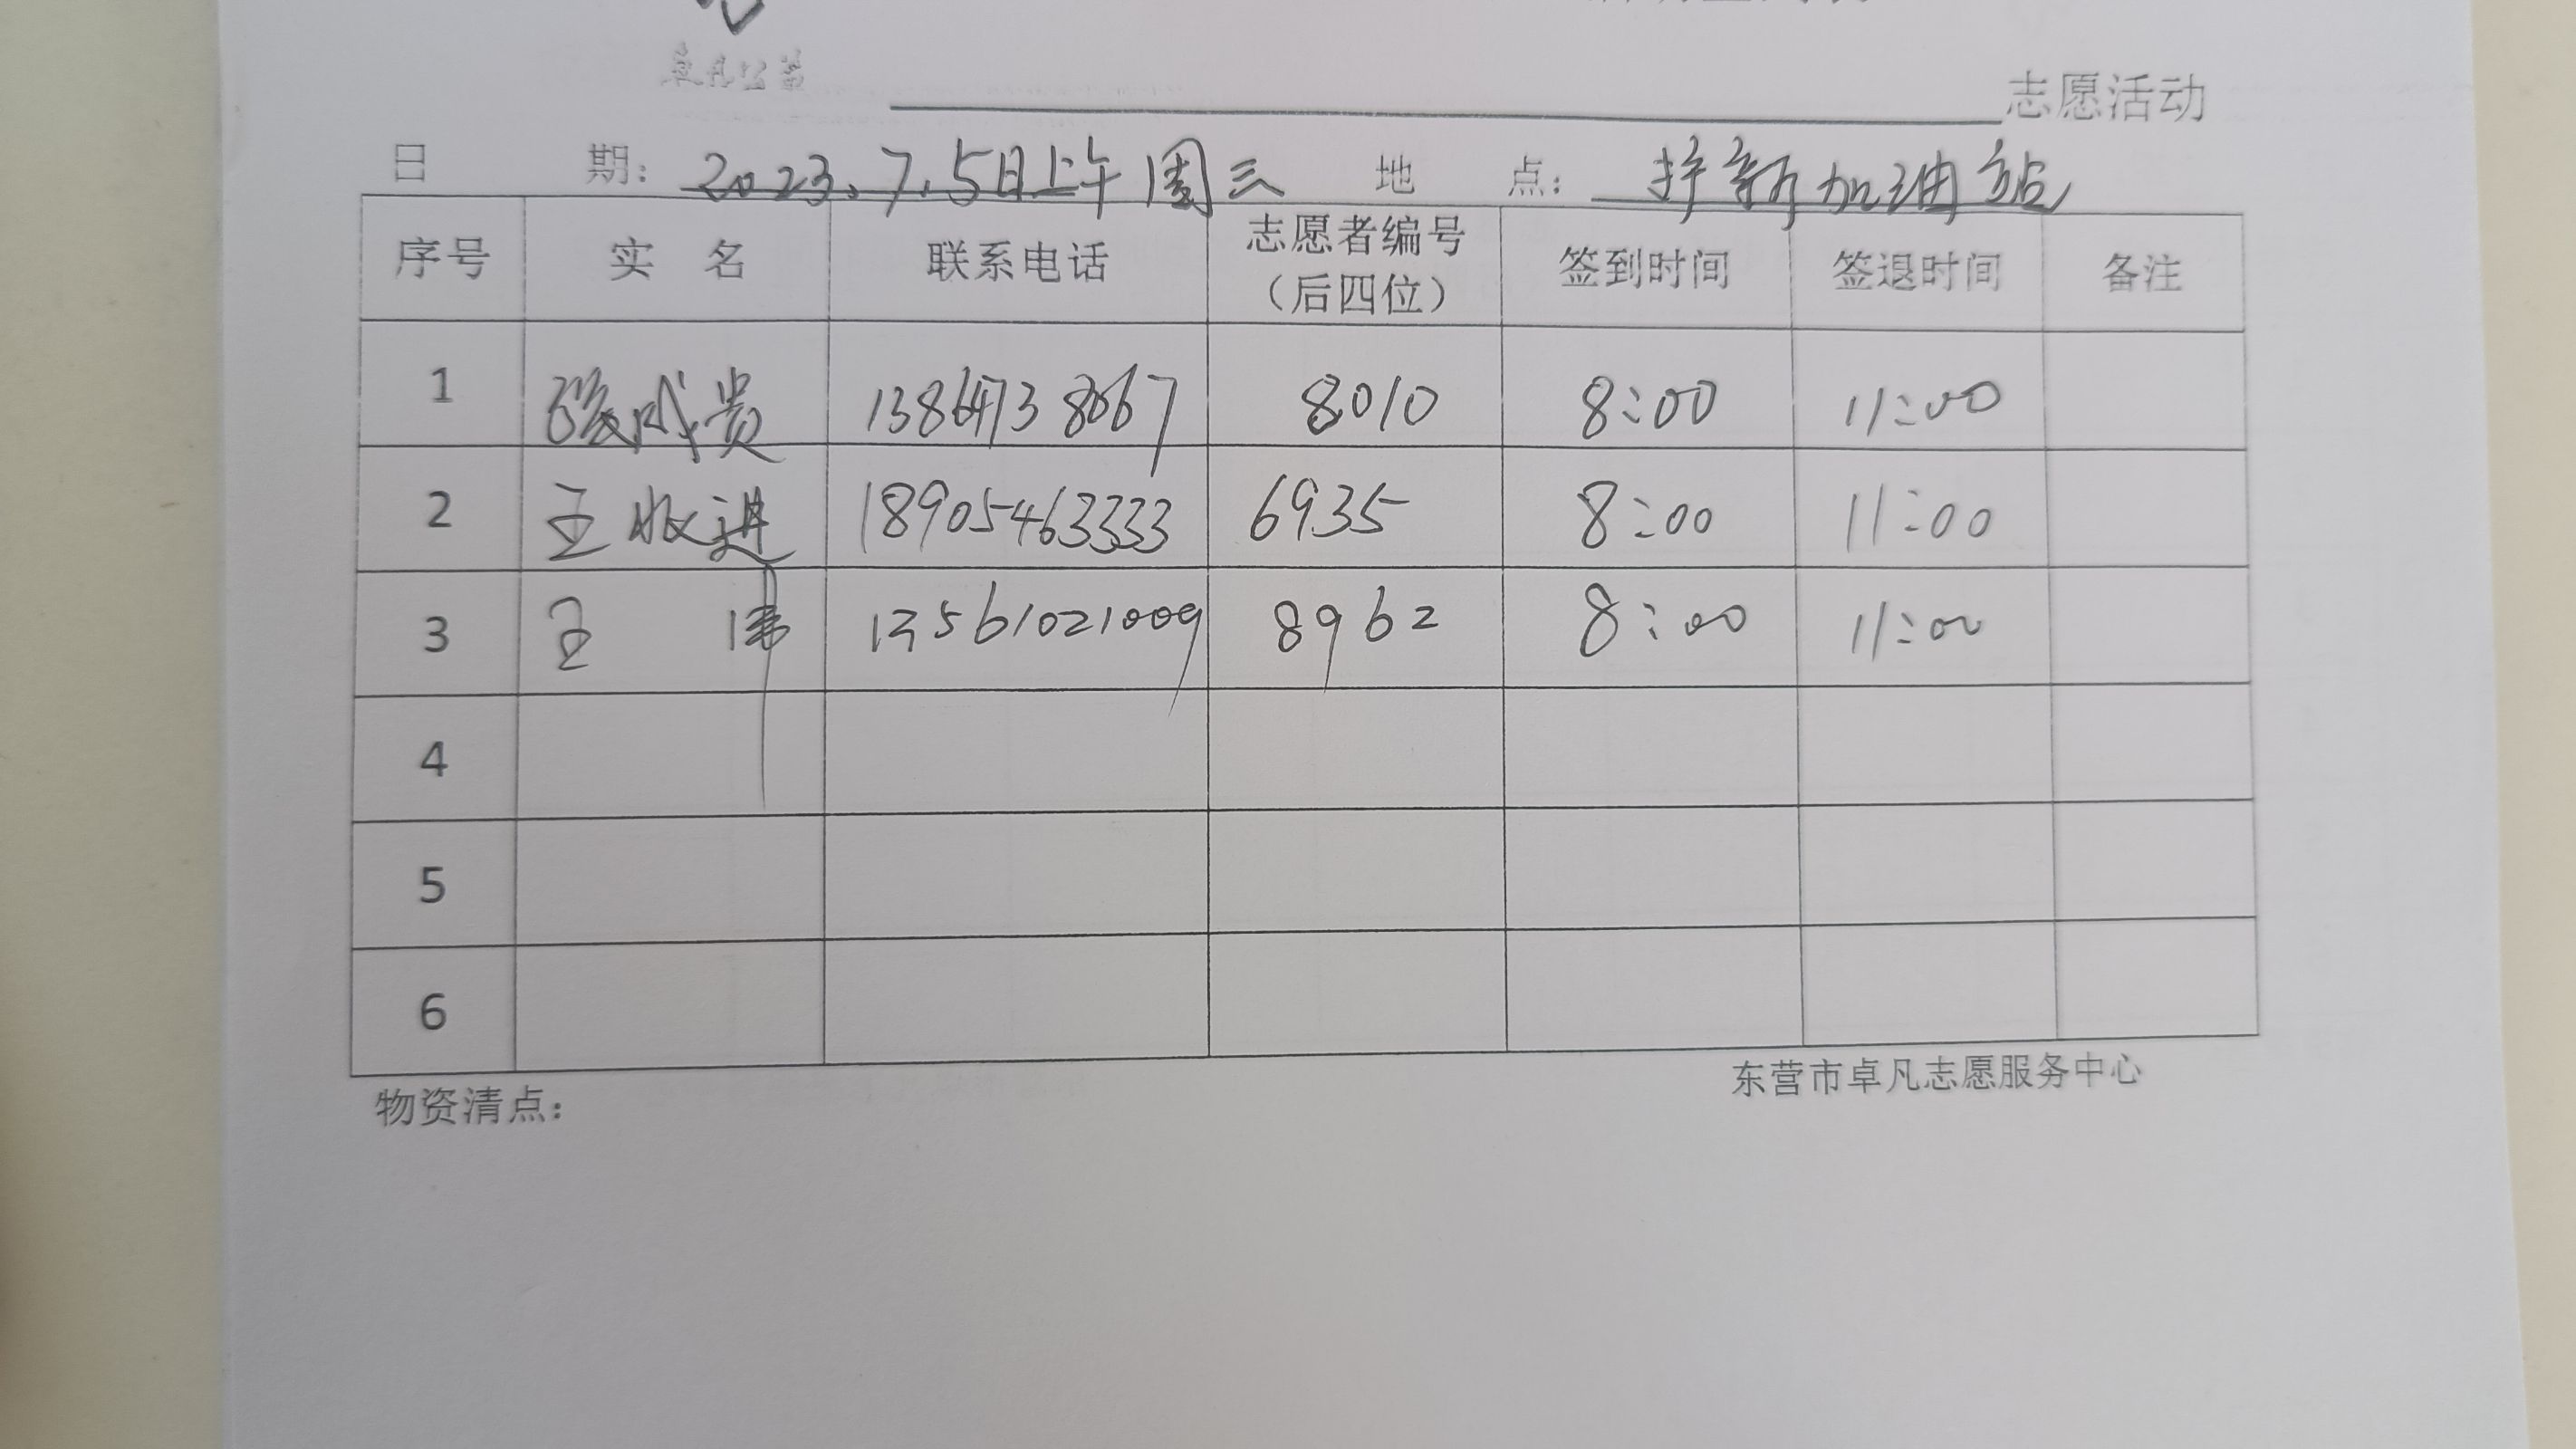 志愿活动
日 期: 2023.7.5日上午周三 地 点: 护新加油站
序号 实 名 联系电话 志愿者编号（后四位） 签到时间 签退时间 备注
1 贵 8010 8:00 11:00
2 王收进 18905463333 6935 8:00 11:00
3 王 伟 13561021009 8962 8:00 11:00
4
5
6
物资清点: 东营市卓凡志愿服务中心